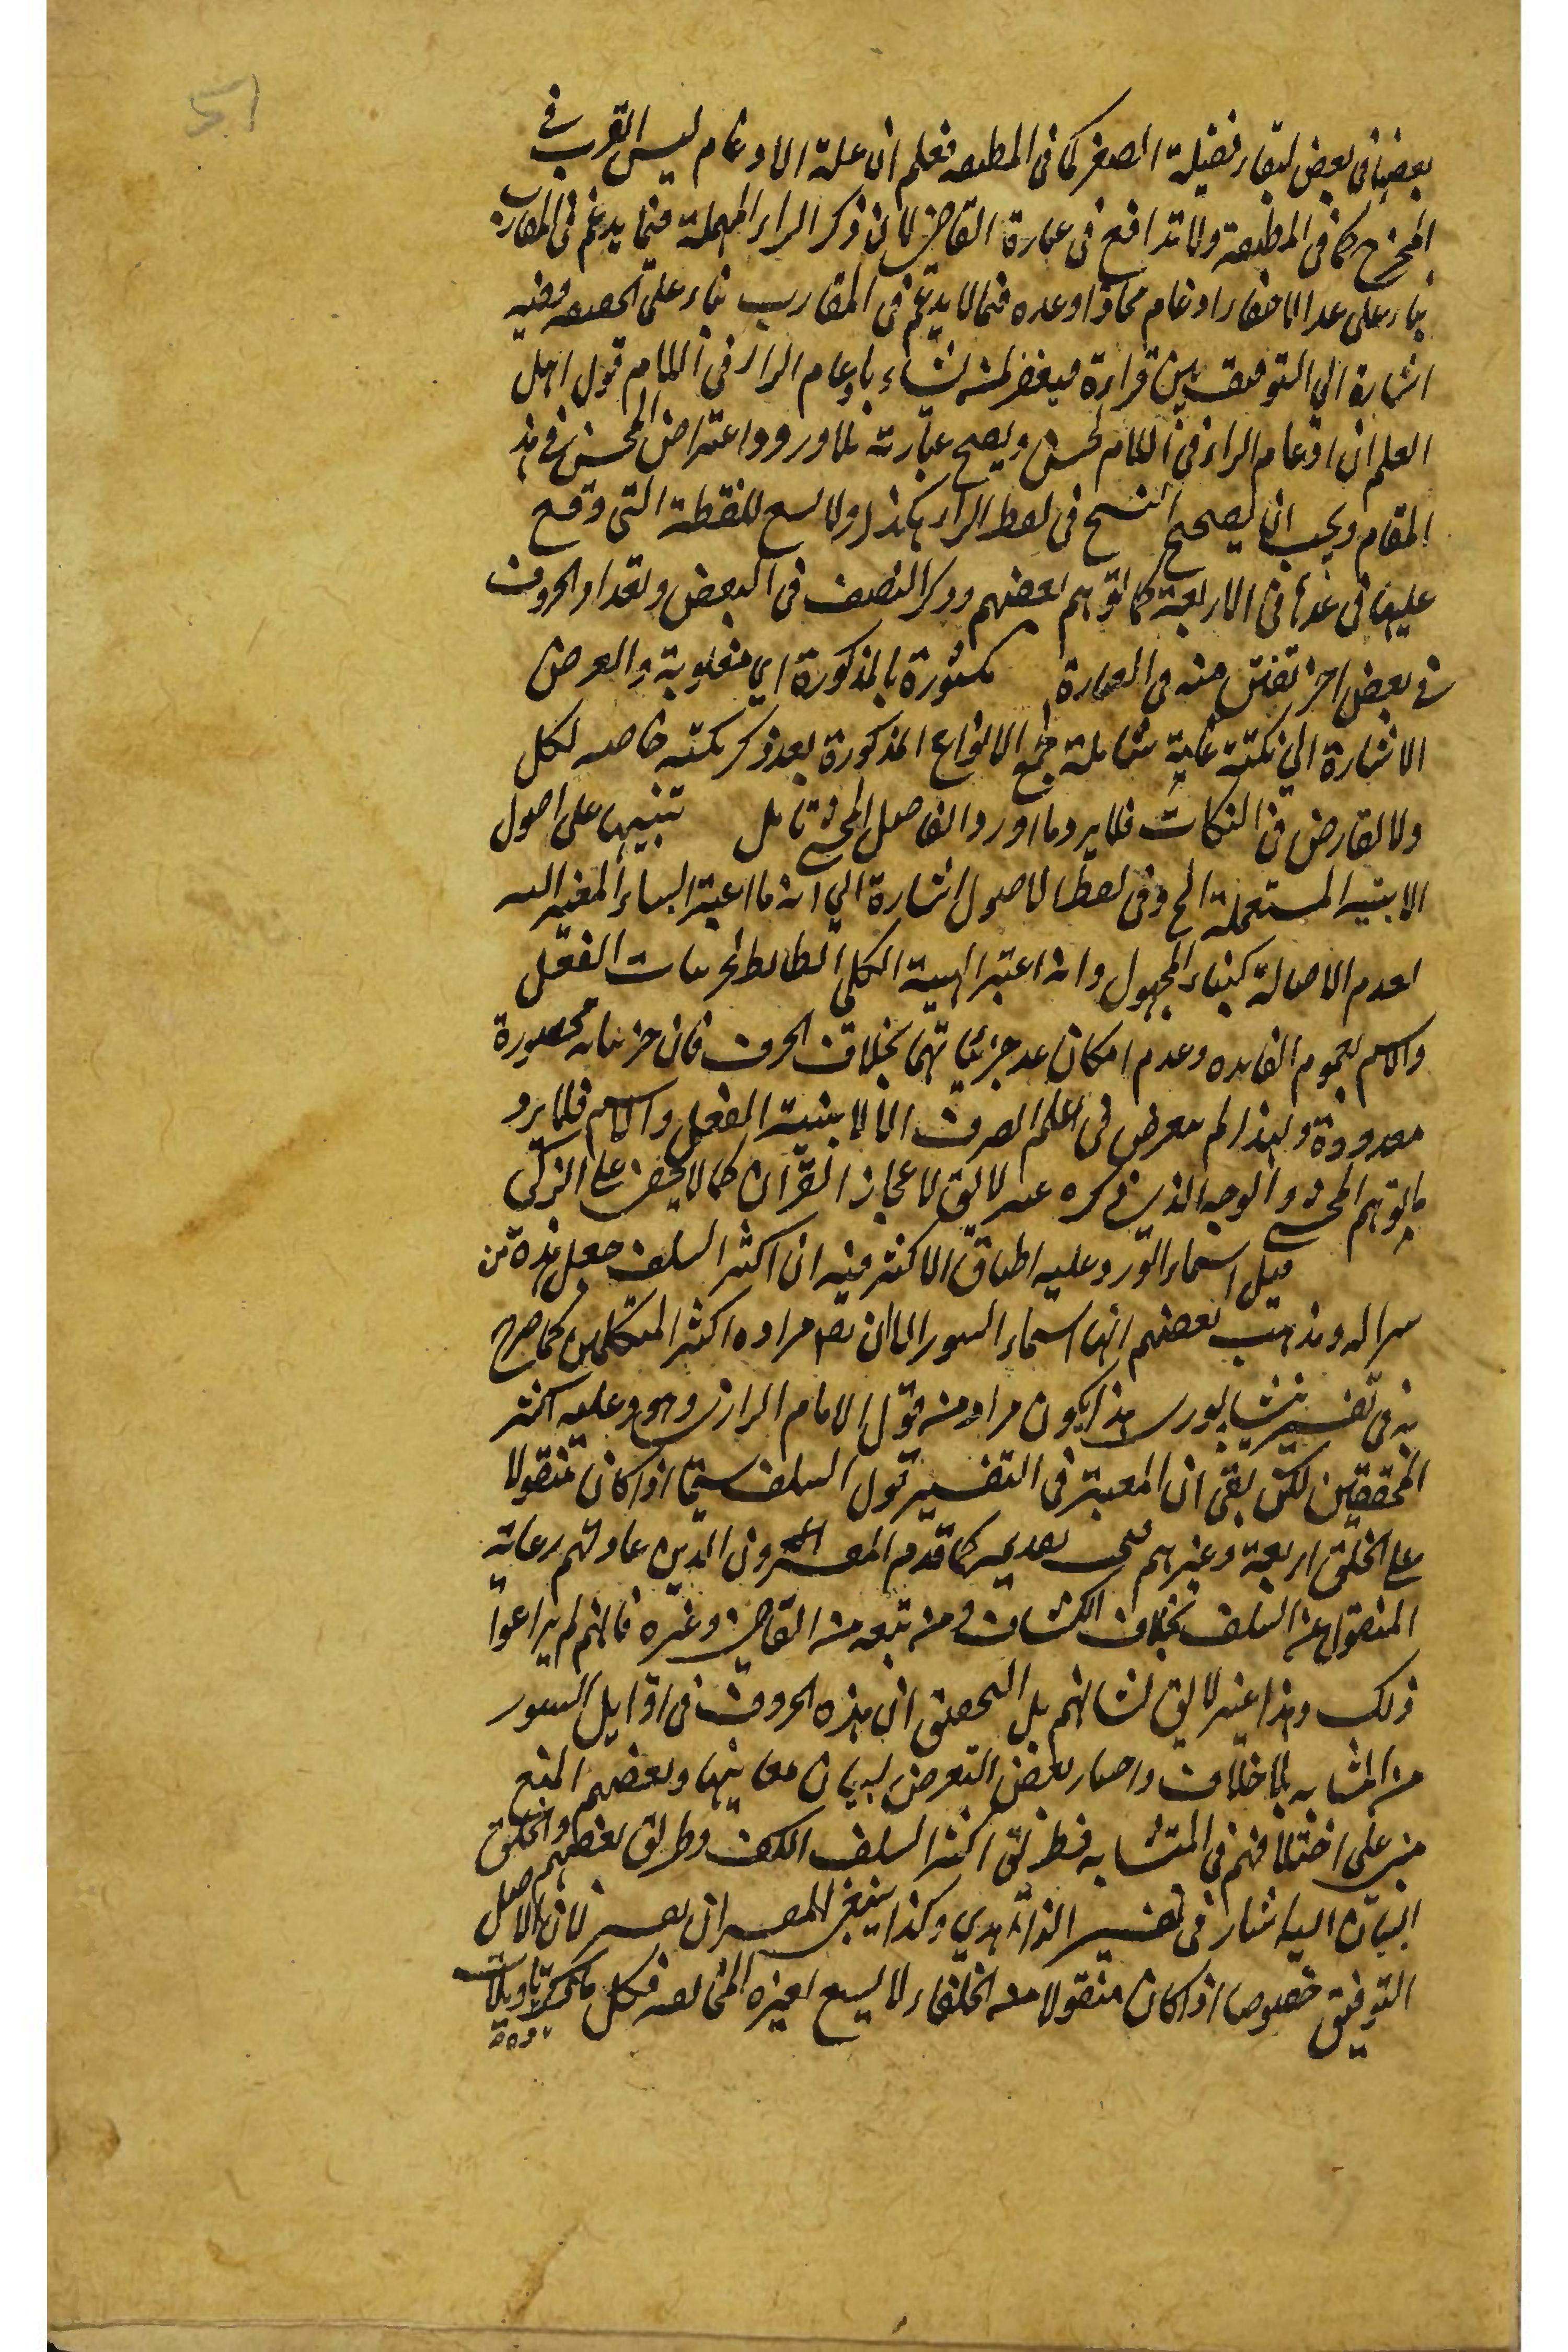 51
بعضها فى بعض لبقاء فضيلة الصفير كما فى المطبقه فعلم ان علة الادغام ليس القرب فى
المخرج كما فى المطبقة ولا تدافع فى عبارة القاضى لان ذكر الراء المهملة فيما يدغم فى المقارب
بناء على عد الاخفاء ادغام مجازا وعده فيما لا يدغم فى المقارب بناء على الحقيقه وفيه
اشارة الى التوفيق بين قراءة فيغفر لمن يشاء بادغام الراء فى اللام قول اهل
العلم ان ادغام الراء فى اللام لحن ويصح عبارته فلا ورود اعتراض المحشى فى هذ
المقام ويجب ان يصحح النسخ فى لفظ الراء هكذا ولا يسع للنقطة التى وقع
عليها فى عدها فى الاربعة كما توهم بعضهم وذكر النصف فى البعض وتعداد الحروف
فى بعض اخر تفنن منه فى العبارة مكثورة بالمذكورة اى مغلوبة والغرض
الاشارة الى نكتة عامة شاملة لجميع الانواع المذكورة بعد ذكر نكتة خاصه لكل
ولا تعارض فى النكات فلا يرد ما اورد الفاضل المحشى تامل تنبيها على اصول
الابنيه المستعملة الخ وفى لفظ الاصول اشارة الى انه ما اعتبر البناء المغير اليه
لعدم الاصالة كبناء المجهول وانه اعتبر الهيئة الكلى الضابط لجزئيات الفعل
والاسم لعموم الفائده وعدم امكان عد جزئياتهما بخلاف الحرف فان جزئياته محصورة
معدودة ولهذا لم يتعرض فى علم الصرف الا لابنية الفعل والاسم فلا يرد
ما توهم المحشى والوجه الذى ذكره غير لايق لاعجاز القرآن كما لا يخفى على الزكى
قيل اسماء السور وعليه اطباق الاكثر فيه ان اكثر السلف جعل هذه من
سر الله وذهب بعضهم انها اسماء السور الا ان يقال مراده اكثر المتكلمين كما صرح
به فى تفسير نيشابورى هذا يكون مراد من قول الامام الرازى وهو وعليه اكثر
المحققين لكن بقى ان المعتبر فى التفسير قول السلف سيما اذا كان منقولا
على الخلفى اربعة وغيرهم فينبغى تقديمه كما قدم المفسرون الذين عادتهم رعاية
المنقول عن السلف بخلاف الكشاف ومن تبعه من القاضى وغيره فانهم لم يراعوا
ذلك وهذا غير لايق لشانهم بل التحقيق ان هذه الحروف فى اوايل السور
من المشابه بلا خلاف واختار بعض التعرض لبيان معانيها وبعضهم المنع
مبنى على اختلافهم فى المتشابه فطريق اكثر السلف الكف وطريق بعضهم والخلف
البيان اليه اشار فى تفسير الزاهدى وكذا ينبغى للمفسر ان يفسر لان الاصل
التوفيق خصوصا اذا كان منقولا من الخلفاء لا يسع لغيره المخالفه فكل ما ذكر تاويلات